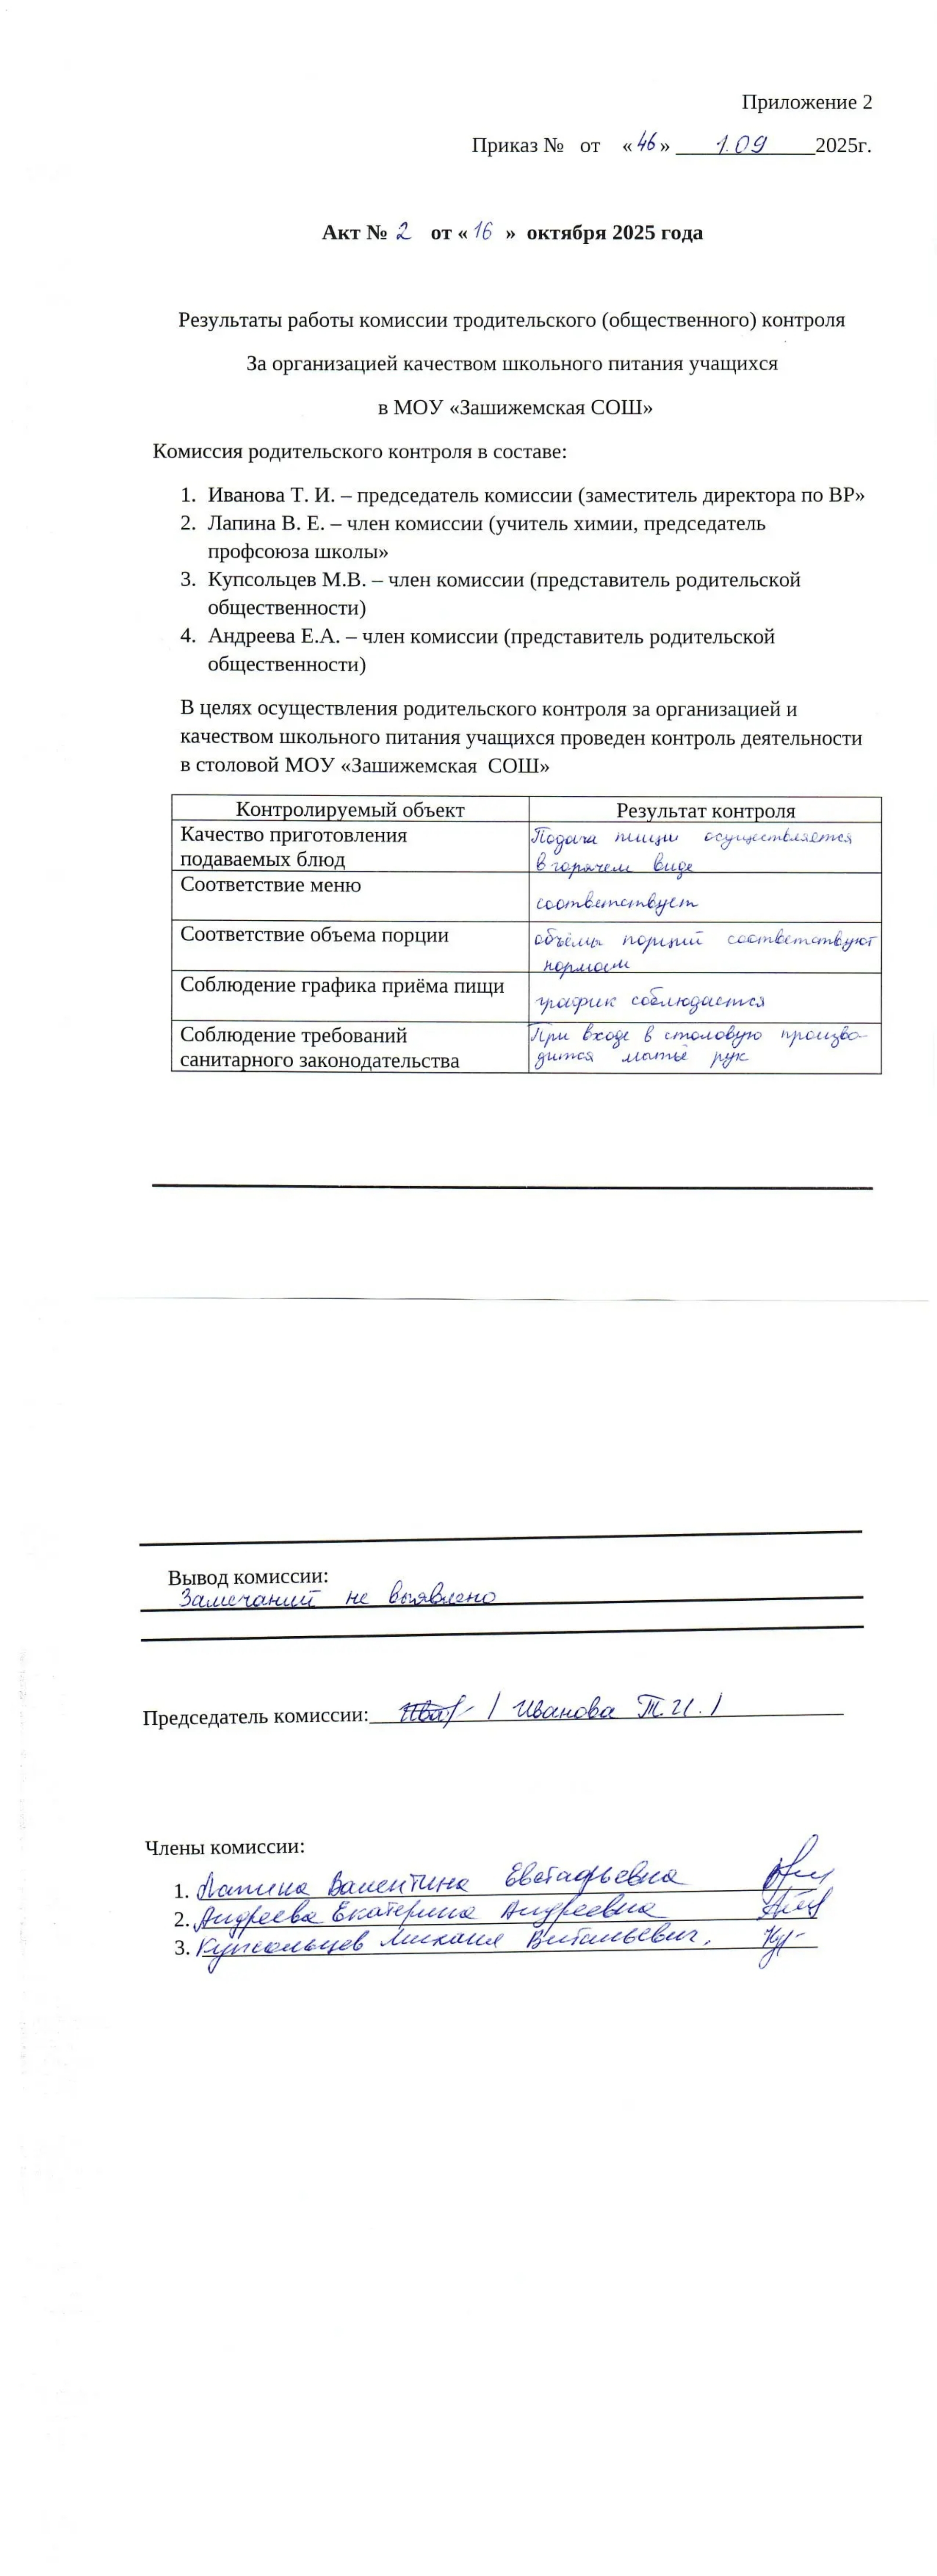 Приложение 2
Приказ № от «46» 1.09 2025г.
Акт № 2 от « 16 » октября 2025 года
Результаты работы комиссии тродительского (общественного) контроля
За организацией качеством школьного питания учащихся
в МОУ «Зашижемская СОШ»
Комиссия родительского контроля в составе:
1. Иванова Т. И. – председатель комиссии (заместитель директора по ВР»
2. Лапина В. Е. – член комиссии (учитель химии, председатель
профсоюза школы»
3. Купсольцев М.В. – член комиссии (представитель родительской
общественности)
4. Андреева Е.А. – член комиссии (представитель родительской
общественности)
В целях осуществления родительского контроля за организацией и
качеством школьного питания учащихся проведен контроль деятельности
в столовой МОУ «Зашижемская СОШ»
Контролируемый объект Результат контроля
Качество приготовления Подача пищи осуществляется
подаваемых блюд в горячем виде
Соответствие меню
соответствует
Соответствие объема порции объёмы порций соответствуют
нормам
Соблюдение графика приёма пищи
график соблюдается
Соблюдение требований При входе в столовую произво-
санитарного законодательства дится мытьё рук
Вывод комиссии:
Замечаний не выявлено
Председатель комиссии: / Иванова Т.И. /
Члены комиссии:
1. Лапина Валентина Евстафьевна
2. Андреева Екатерина Андреевна
3. Купсольцев Михаил Витальевич.